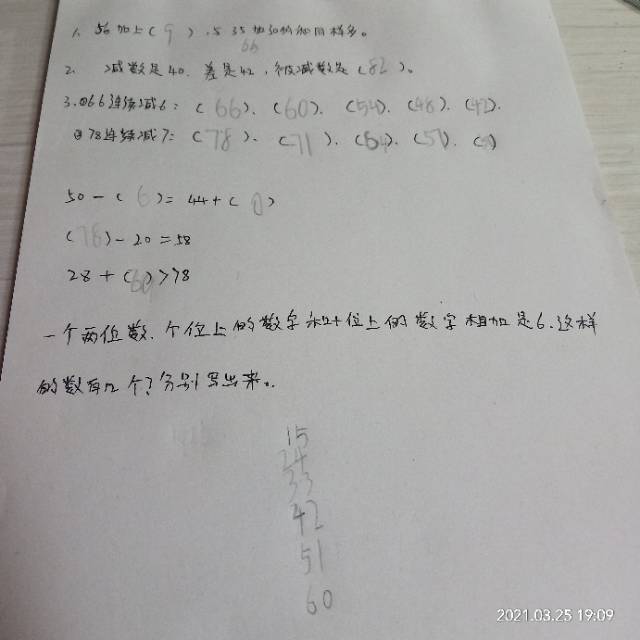 1. 56加上(9),与35加30的和同样多。
65
2. 减数是40,差是42,被减数是(82)。
3.①66连续减6:(66)、(60)、(54)、(48)、(42).
②78连续减7:(78)、(71)、(64)、(57)、( )
50-(6)=44+(0)
(78)-20=58
28+(60)>78
一个两位数,个位上的数字和十位上的数字相加是6,这样
的数有几个?分别写出来。
15
24
33
42
51
60
2021.03.25 19:09